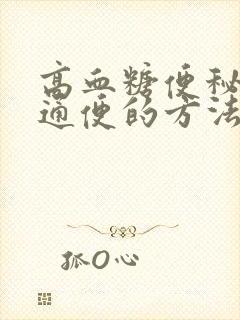 高血糖便秘
通便的方法
孤O心